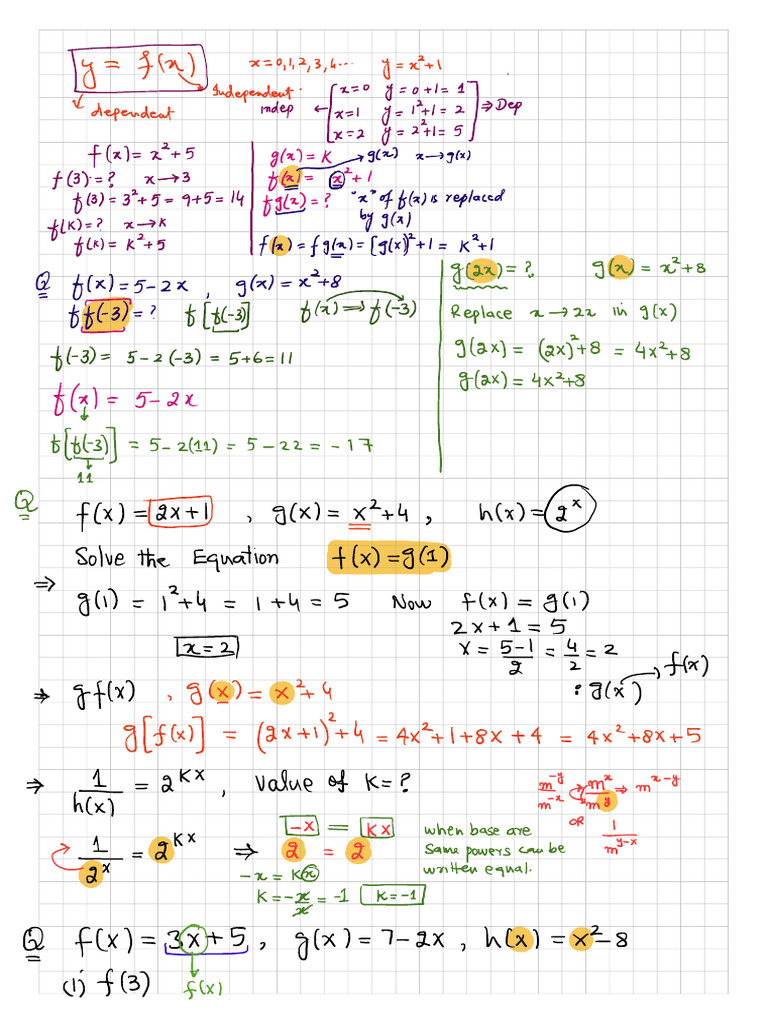 y = f(x)
x = 0, 1, 2, 3, 4... y = x²+1
dependent
Independent.
indep ← [x=0 y = 0+1 = 1
x=1 y = 1²+1 = 2
x=2 y = 2²+1 = 5] ⇒ Dep
f(x) = x²+5
f(3) = ? x → 3
f(3) = 3²+5 = 9+5 = 14
f(K) = ? x → K
f(K) = K²+5
g(x) = K → g(x) x → g(x)
f(x) = x²+1
fg(x) = ? "x" of f(x) is replaced
by g(x)
f(x) = fg(x) = [g(x)]²+1 = K²+1
Q f(x) = 5-2x , g(x) = x²+8
ff(-3) = ? f[f(-3)] f(x) ⇒ f(-3)
f(-3) = 5-2(-3) = 5+6 = 11
f(x) = 5-2x
f[f(-3)] = 5-2(11) = 5-22 = -17
11
g(2x) = ?, g(x) = x²+8
Replace x → 2x in g(x)
g(2x) = (2x)²+8 = 4x²+8
g(2x) = 4x²+8
Q f(x) = 2x+1 , g(x) = x²+4 , h(x) = 2ˣ
Solve the Equation f(x) = g(1)
⇒ g(1) = 1²+4 = 1+4 = 5 Now f(x) = g(1)
2x+1 = 5
x = 2
x = (5-1)/2 = 4/2 = 2
⇒ gf(x) , g(x) = x²+4 : g(x) → f(x)
g[f(x)] = (2x+1)²+4 = 4x²+1+8x+4 = 4x²+8x+5
⇒ 1/h(x) = 2^Kx , value of K = ?
m^-y/m^-x m^x/m^y ⇒ m^x-y
OR 1/m^y-x
1/2^x = 2^Kx ⇒ 2^-x = 2^Kx
when base are
same powers can be
written equal.
-x = Kx
K = -x/x = -1 K = -1
Q f(x) = 3x+5 , g(x) = 7-2x , h(x) = x²-8
(1) f(3) f(x)